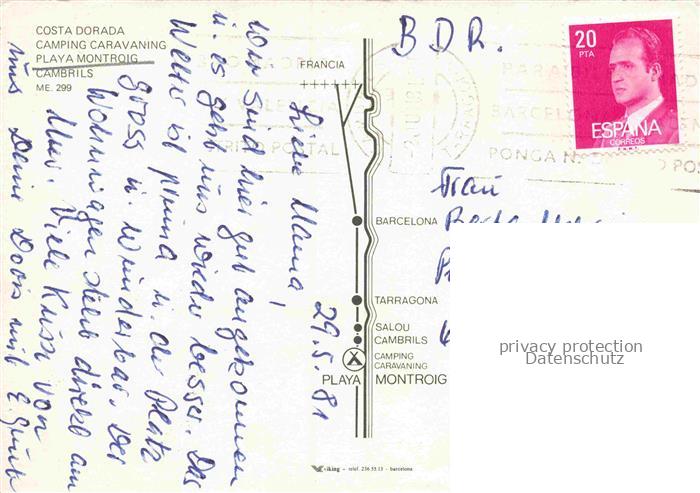 COSTA DORADA
CAMPING CARAVANING
PLAYA MONTROIG
CAMBRILS
ME. 299
29.5.81
Liebe Mama!
Wir sind hier gut angekommen
u. es geht uns wieder besser. Das
Wetter ist prima u. der Platz
gross u. wunderbar. Der
Wohnwagen steht direkt am
Meer. Viele Küsse von
uns Deine Doris mit E.
FRANCIA
BARCELONA
TARRAGONA
SALOU
CAMBRILS
CAMPING
CARAVANING
PLAYA MONTROIG
viking - telef. 236 55 13 - barcelona
B.D.R.
20
PTA
ESPAÑA
CORREOS
BARCELONA
POSTAL
PONGA
Frau
privacy protection
Datenschutz